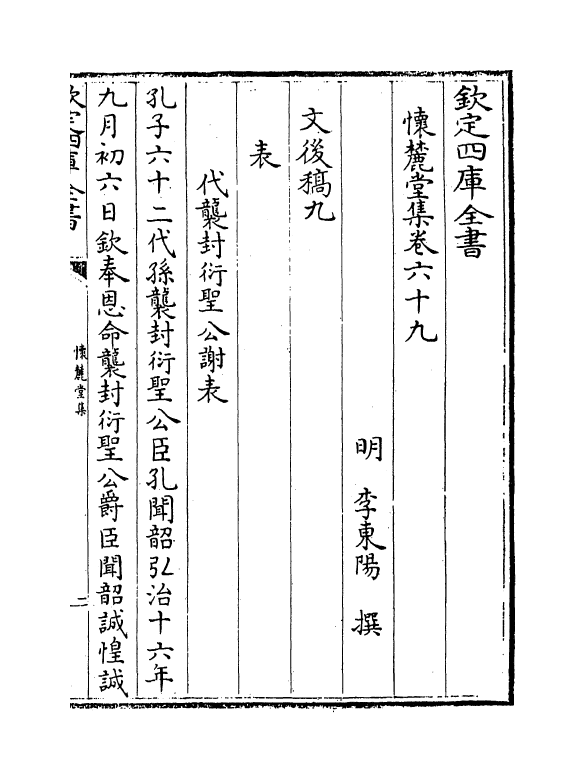 欽定四庫全書
懷麓堂集卷六十九
明 李東陽 撰
文後稿九
表
代襲封衍聖公謝表
孔子六十二代孫襲封衍聖公臣孔聞韶弘治十六年
九月初六日欽奉恩命襲封衍聖公爵臣聞韶誠惶誠
欽定四庫全書
懷麓堂集